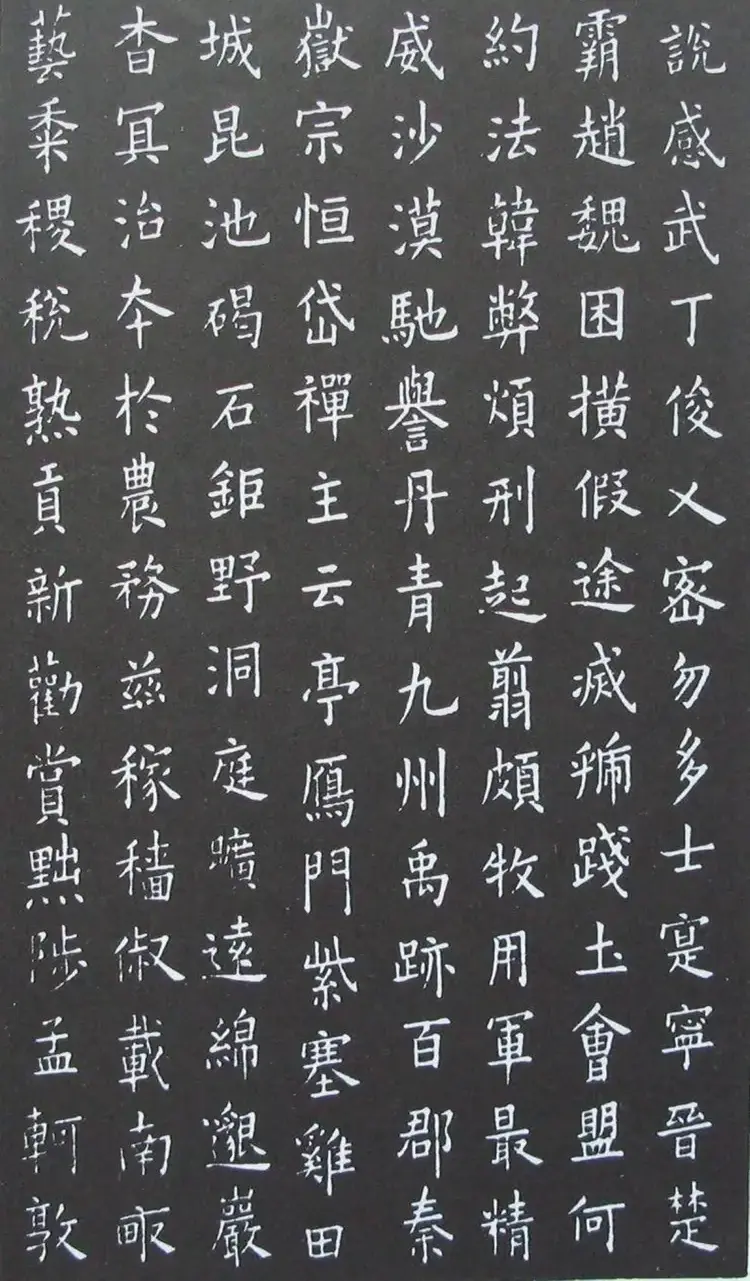 說感武丁俊乂密勿多士寔寧晉楚
霸趙魏困橫假途滅虢踐土會盟何
約法韓弊煩刑起翦頗牧用軍最精
威沙漠馳譽丹青九州禹跡百郡秦
嶽宗恒岱禪主云亭鴈門紫塞雞田
城昆池碣石鉅野洞庭曠遠綿邈巖
杳冥治本於農務茲稼穡俶載南畝
藝黍稷稅熟貢新勸賞黜陟孟軻敦